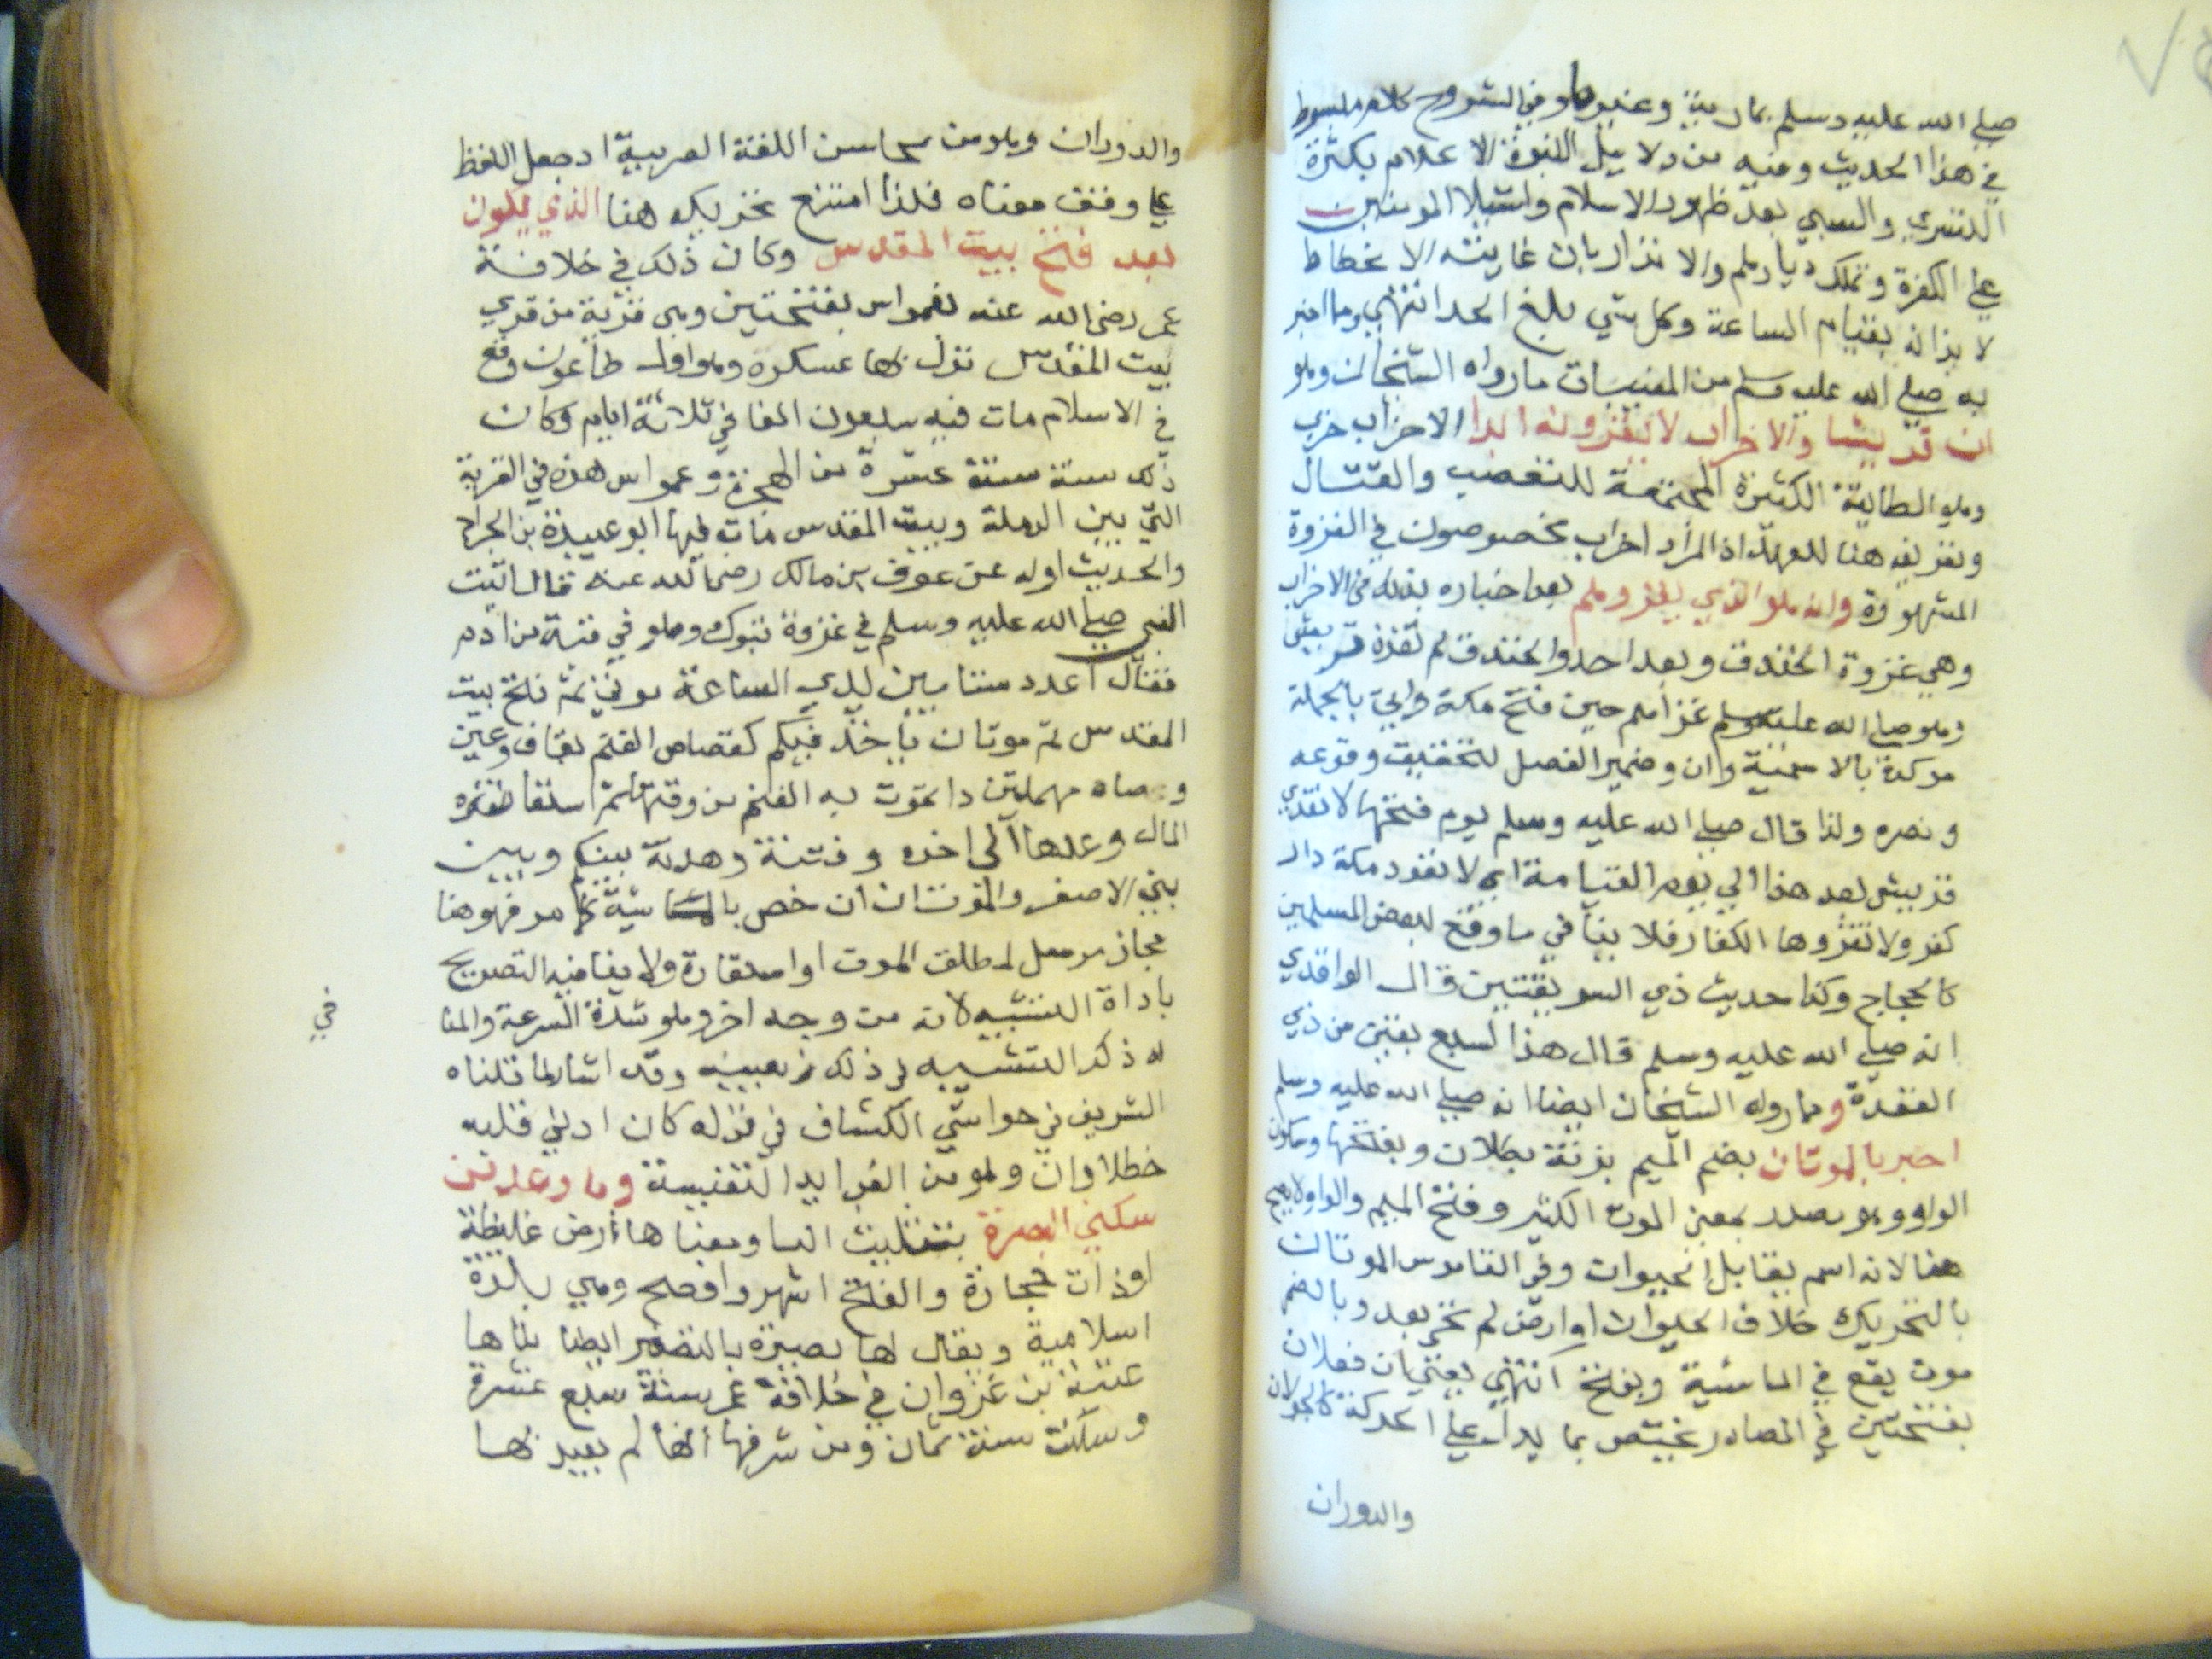 صلي الله عليه وسلم بمارية وغيرها وفي الشروح كلام مبسوط
في هذا الحديث ومنيه من دلايل النبوة الاعلام بكثرة
التسري والسبي بعد ظهور الاسلام واستيلا المومنين
علي الكفرة وتملك ديارهم والانذار بان غايته الانحطاط
لايذانه بقيام الساعة وكل شي بلغ الحد انتهي وما اخبر
به صلي الله عليه وسلم من المغيبات مارواه الشيخان وهو
ان قريشا والاحزاب لا يغزونه ابدا الاحزاب حزب
وهو الطايفة الكثيرة المجتمعة للتعصب والقتال
وتعريفه هنا للعهد اذ المراد احزاب مخصوصون في الغزوة
المشهورة وانه هو الذي يغزوهم بعد اخباره بذلك في الاحزاب
وهي غزوة الخندق وبعد احد والخندق لم تغزه قريش
وهو صلي الله عليه وسلم غزاهم حين فتح مكة واتي بالجملة
موكدة بالاسمية وان وضمير الفصل لتحقيق وقوعه
ونصره ولذا قال صلي الله عليه وسلم يوم فتحها لا تغزي
قريش بعد هذا الي يوم القيامة اي لا تعود مكة دار
كفر ولا تغزوها الكفار فلا ينافي ما وقع لبعض المسلمين
كالحجاج وكذا حديث ذي السويقتين قال الواقدي
انه صلي الله عليه وسلم قال هذا لسبع بقين من ذي
القعدة ومما رواه الشيخان ايضا انه صلي الله عليه وسلم
اخبر بالموتان بضم الميم بزنة بطلان وبفتحها وسكون
الواو وهو مصدر بمعني الموت الكثير وفتح الميم والواو لا يصح
هنا لانه اسم يقابل الحيوان وفي القاموس الموتان
بالتحريك خلاف الحيوان او ارض لم تحي بعد وبالضم
موت يقع في الماشية ويفتح انتهي يعني ان فعلان
بفتحتين في المصادر يختص بما يدل علي الحركة كالجولان
والدوران
والدوران وهو من محاسن اللغة العربية اذ جعل اللفظ
علي وفق معناه فلذا امتنع تحريكه هنا الذي يكون
بعد فتح بيت المقدس وكان ذلك في خلافة
عمر رضي الله عنه بعمواس بفتحتين وهي قرية من قري
بيت المقدس نزل بها عسكره وهو اول طاعون وقع
في الاسلام مات فيه سبعون الفا في ثلاثة ايام وكان
ذلك سنة ستة عشرة من الهجرة وعمواس هذه هي القرية
التي بين الرملة وبيت المقدس مات فيها ابو عبيدة بن الجراح
والحديث اوله عن عوف بن مالك رضي الله عنه قال اتيت
النبي صلي الله عليه وسلم في غزوة تبوك وهو في قبة من ادم
فقال اعدد ستا بين يدي الساعة موتي ثم فتح بيت
المقدس ثم موتان ياخذ فيكم كقعاص الغنم بقاف وعين
وصاد مهملتين داء تموت به الغنم من وقتها ثم استفاضة
المال وعدها الي اخره وفتنة وهدنة بينكم وبين
بني الاصفر والموتان ان خص بالماشية كما مر فهو هنا
مجاز مرسل لمطلق الموت او استعارة ولا ينافيه التصريح
باداة التشبيه لانه من وجه اخر وهو شدة السرعة والمنا
في
له ذكر التشبيه لو ذلك من بعينه وقد اشار لما قلناه
الشريف في حواشي الكشاف في قوله كان اذني قلبه
خطلاوان وهو من الفرايد النفيسة وما وعد من
سكني البصرة بتثليث البا ومعناها ارض غليظة
اوذات حجارة والفتح اشهر وافصح وهي بلدة
اسلامية ويقال لها بصيرة بالتصغير ايضا بناها
عتبة بن غزوان في خلافة عمر سنة سبع عشرة
وسكنت سنة ثمان ومن شرفها انها لم يعبد بها